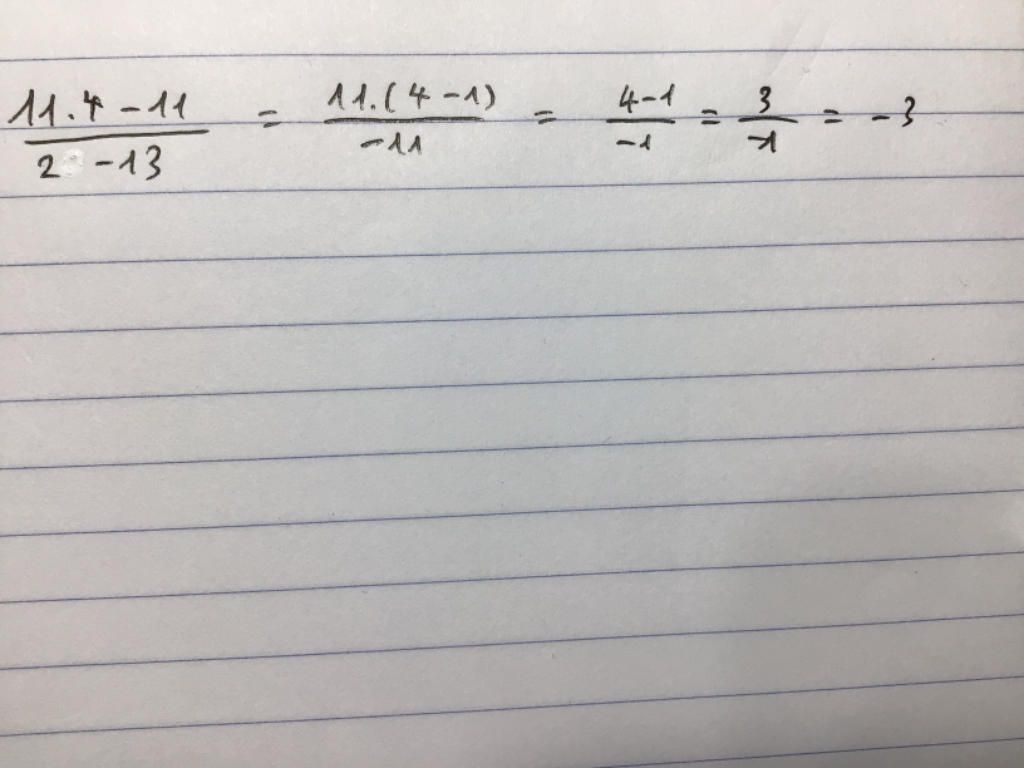 11.4 - 11 / 2 - 13 = 11.(4 - 1) / -11 = 4-1 / -1 = 3 / -1 = -3